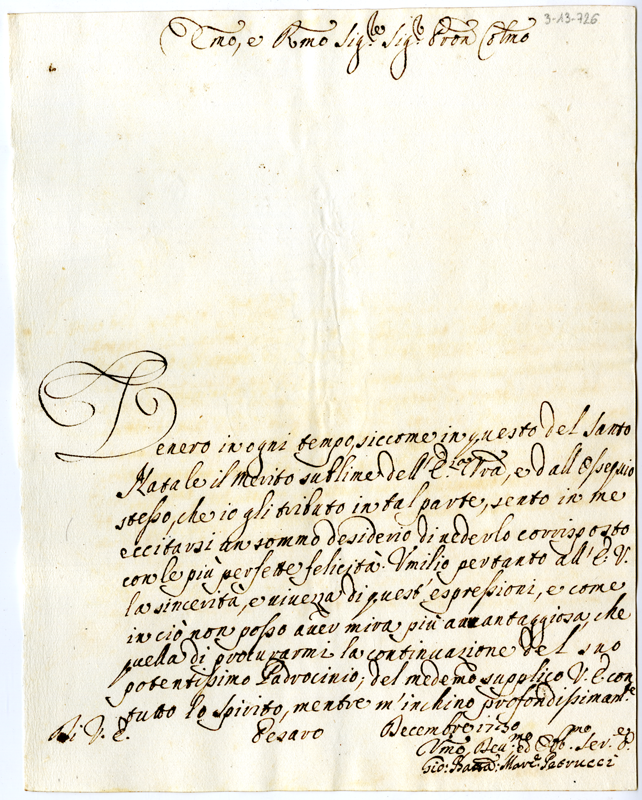 3-13-726
Emo, e Rmo Sig.re Sig.re Pron Colmo
Venero in ogni tempo, siccome in questo del Santo
Natale il merito sublime dell'E.za Vra, e dall'Ossequio
stesso, che io gli tributo in tal parte, sento in me
eccitarsi un sommo desiderio di vederlo corrisposto
con le più perfette felicità. Umilio pertanto all'E. V.
la sincerità, e vivezza di quest'espressioni, e come
in ciò non posso aver mira più avantaggiosa, che
quella di procurarmi la continuazione del suo
potentissimo Padrocinio, del medemo supplico V. E. con
tutto lo spirito, mentre m'inchino profondissimam.te
Di V. E. Pesaro Decembre 1730
Umo Dev.mo ed Obb.mo Ser.e
Gio: Batta: Marc. Petrucci